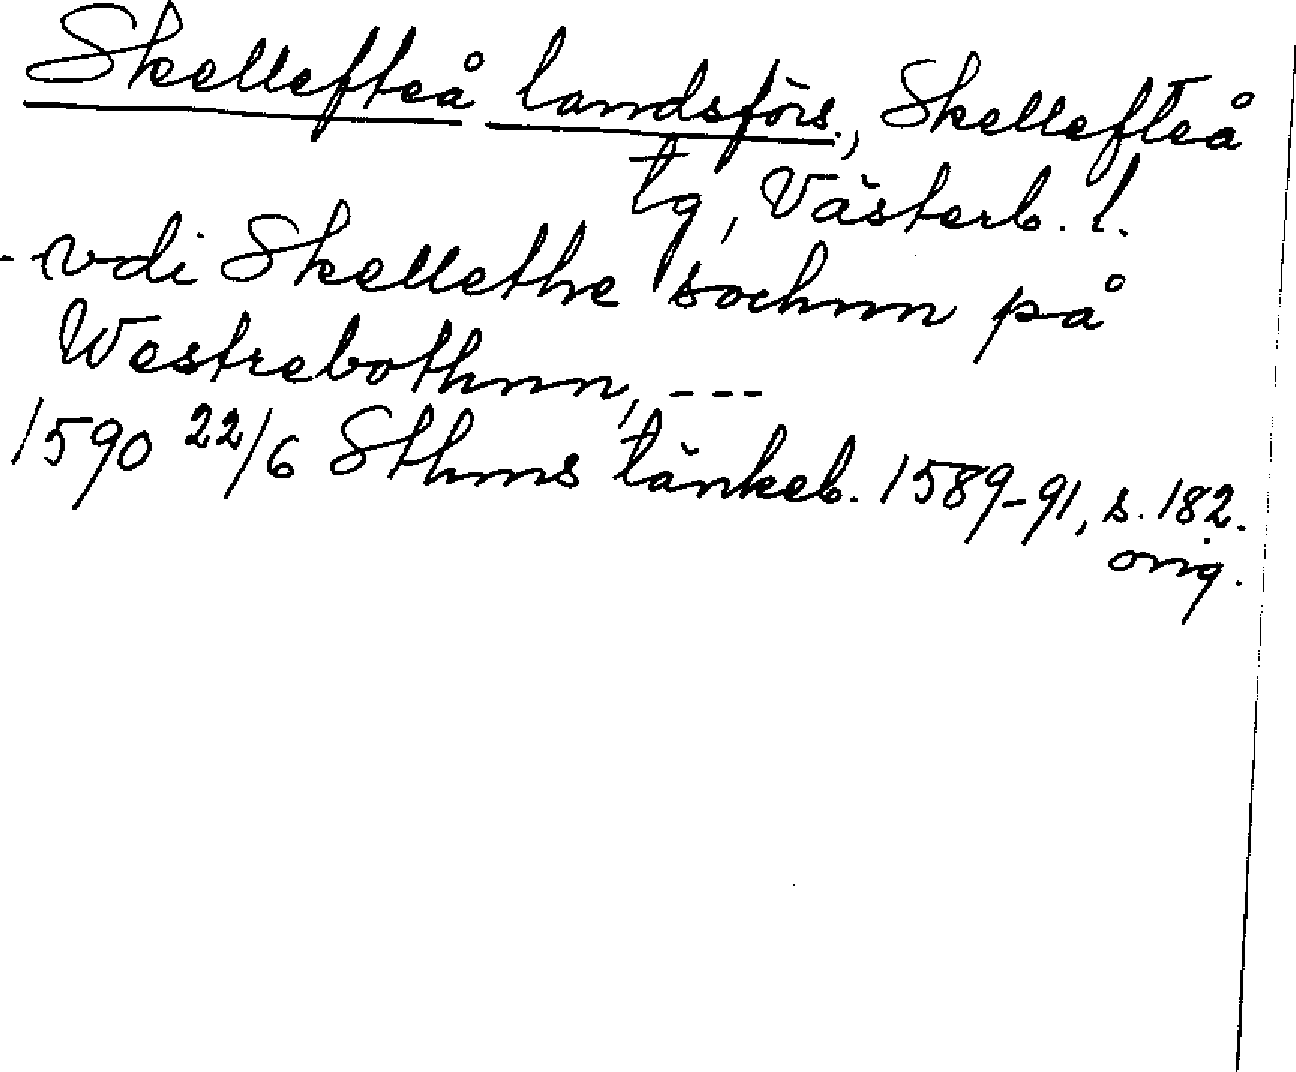 Skellefteå landsförs., Skellefteå
tg, Västerb. l.
- vdi Skellethe sochnn på
Westrebothnn, ---
1590 22/6 Sthms tänkeb. 1589-91, s. 182.
orig.